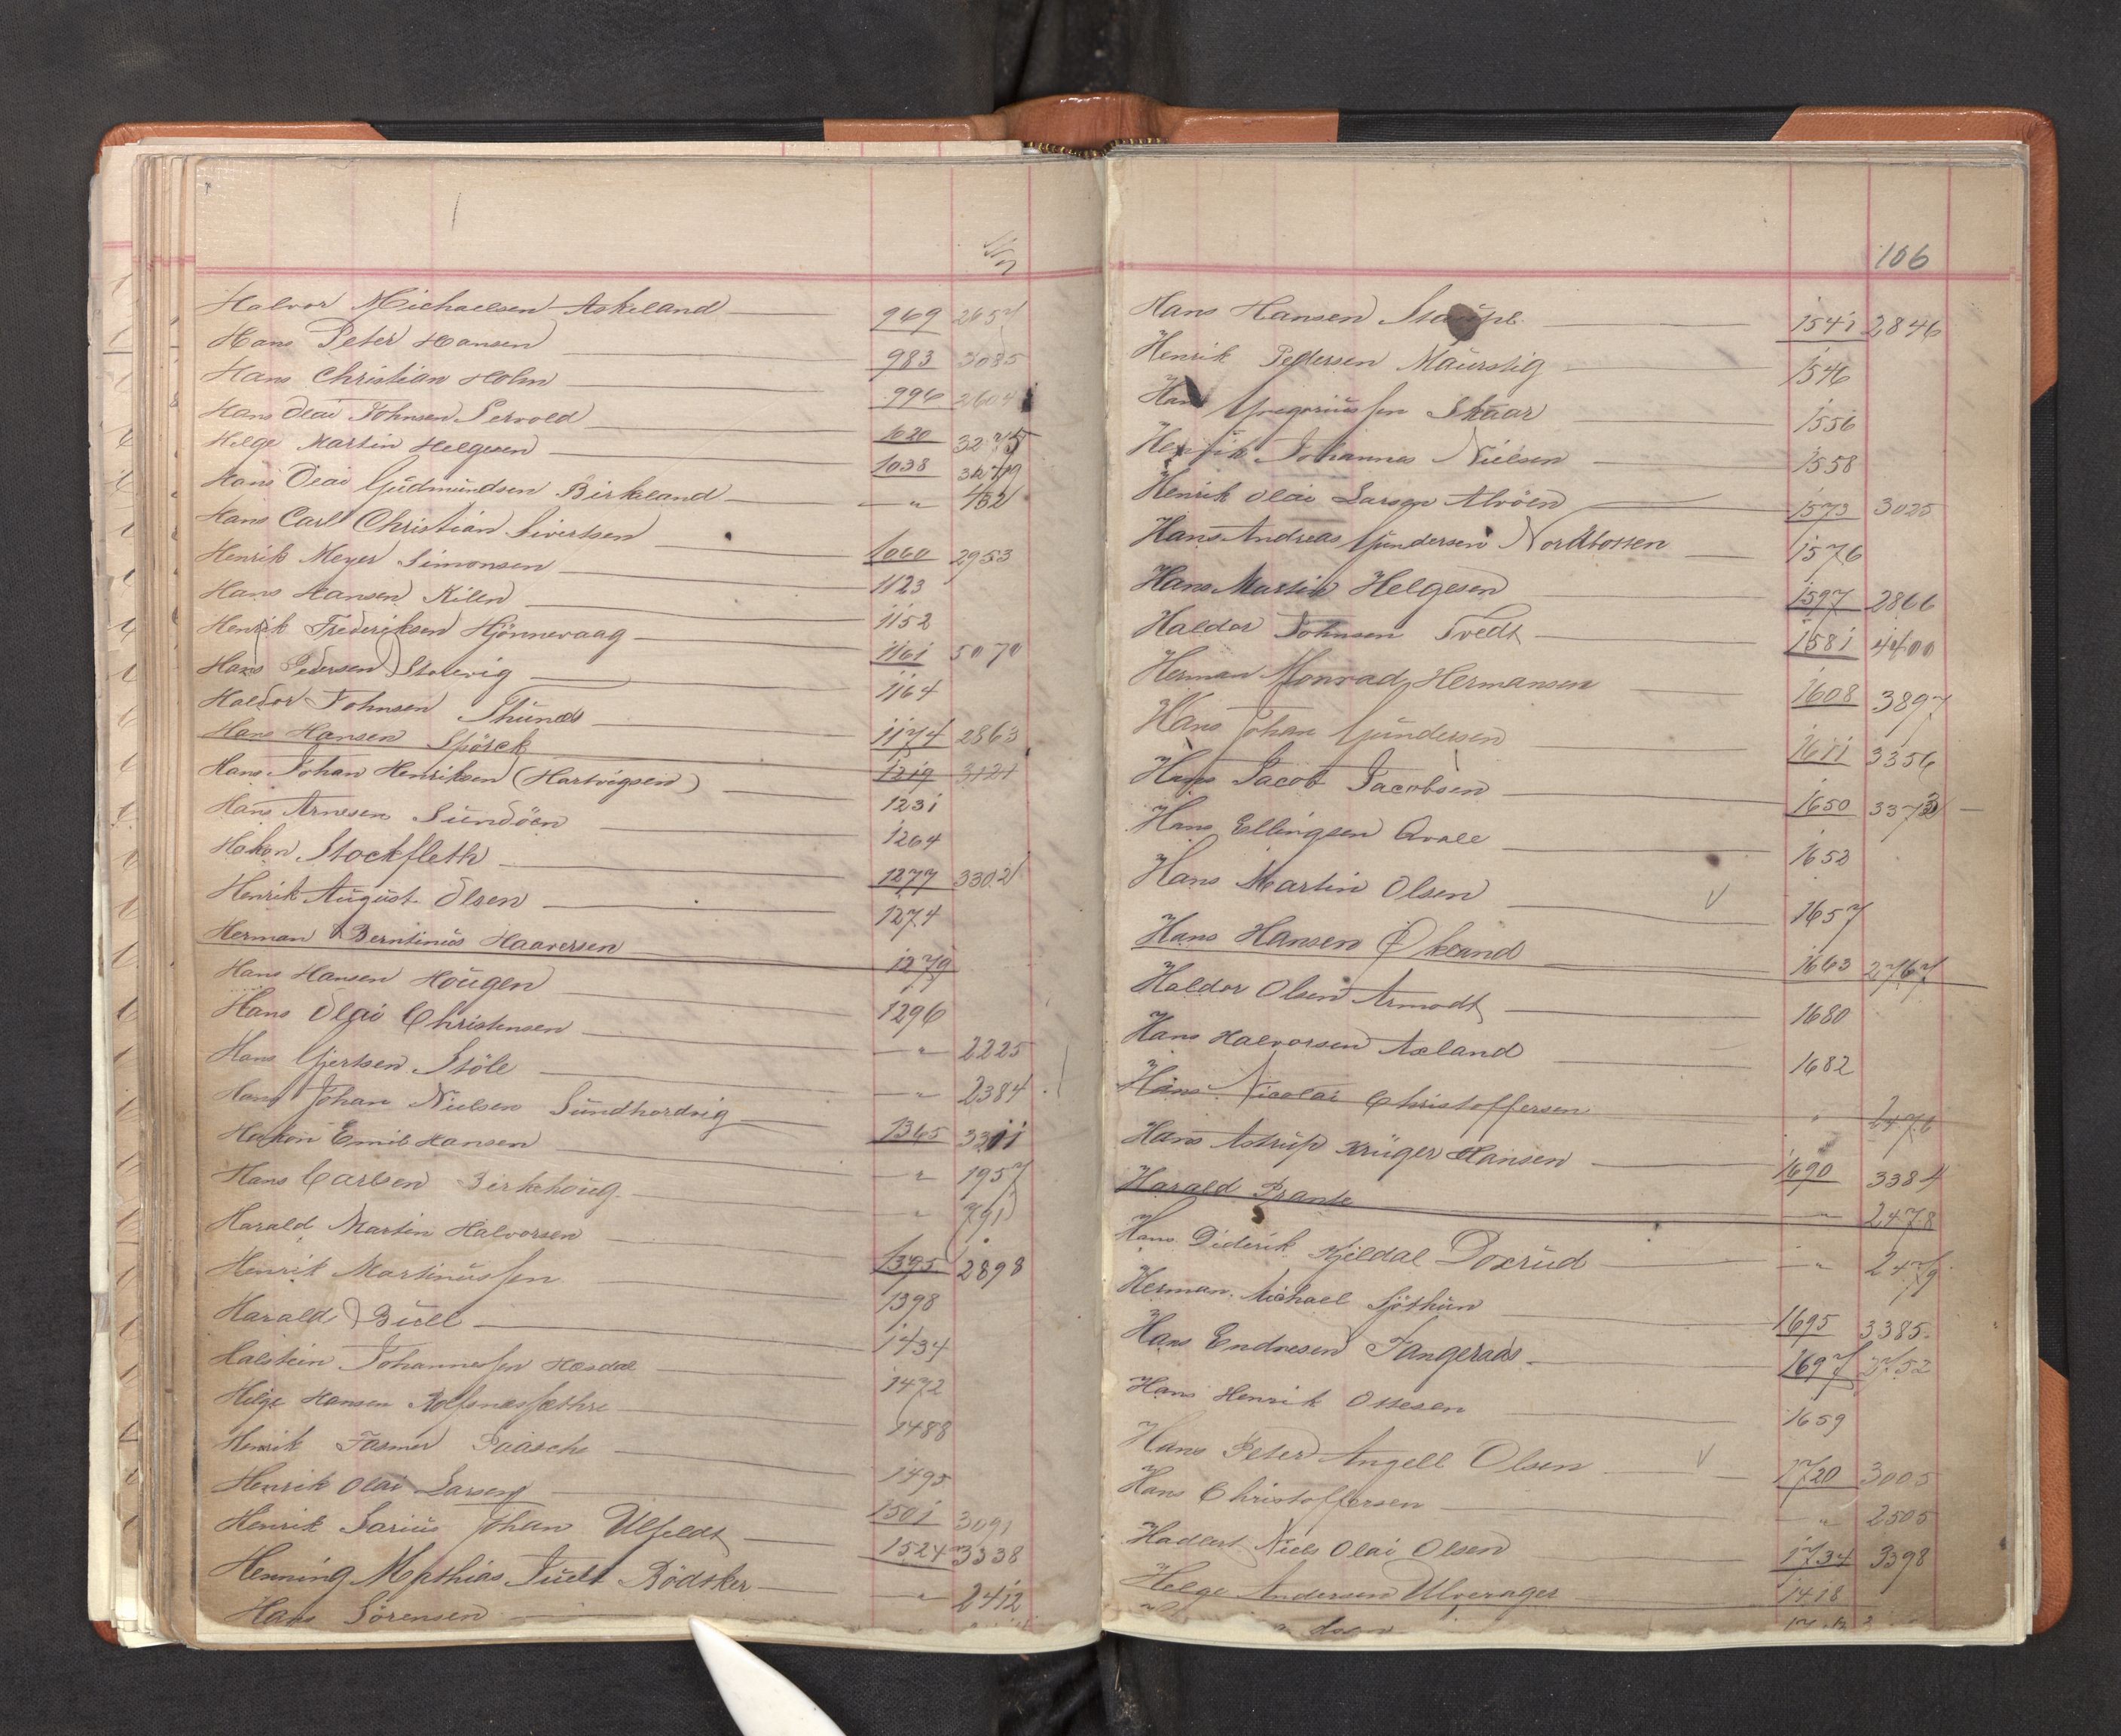 Halvor Michaelsen Askeland 969 2657
Hans Peter Hansen 983 3085
Hans Christian Holm 996 2604
Hans Olai Johnsen Servold 1020 3275
Helge Martin Helgesen 1038 3279
Hans Olai Gudmundsen Birkeland " 482
Hans Carl Christian Sivertsen 1060 2953
Henrik Meyer Simonsen 1123
Hans Hansen Kilen 1152
Henrik Frederiksen Hjönnevaag 1161 5070
Hans Pedersen Stolevig 1164
Haldor Johnsen Thunes 1174 2863
Hans Hansen Spörck 1219 3121
Hans Johan Henriksen (Hartvigsen) 1231
Hans Arnesen Sundöen 1264
Hakon Stockfleth 1277 3302
Henrik August Olsen 1274
Herman Berntinus Haaversen 1279
Hans Hansen Hougen 1296
Hans Olai Christensen " 2225
Hans Gjertsen Stöle " 2384
Hans Johan Nielsen Sundhordvig 1365 3311
Haakon Emil Hansen " 1957
Hans Carlsen Birkehoug " 791
Harald Martin Halvorsen 1395 2898
Henrik Martinussen 1398
Harald Büll 1434
Halstein Johannessen Hasdal 1472
Helge Hansen Rolfsnessæthre 1488
Henrik Fasmer Paasche 1495
Henrik Olai Larsen 1501 3091
Henrik Sarius Johan Ulfeldt 1524 3338
Henning Mathias Juell Rödsker " 2412
Hans Sörensen
106
Hans Hansen 1541 2846
Henrik Pedersen Maurstig 1546
Hans Gregoriussen Skaar 1556
Henrik Johannes Nielsen 1558
Henrik Olai Larsen Alvöen 1573 3025
Hans Andreas Gundersen Nordtossen 1576
Hans Martin Helgesen 1597 2866
Haldor Johnsen Tvedt 1581 4400
Herman Monrad Hermansen 1608 3897
Hans Johan Gundersen 1611 3356
Hans Jacob Jacobsen 1650 3373
Hans Ellingsen Qvale 1652
Hans Martin Olsen V 1657
Hans Hansen Økland 1663 2767
Haldor Olsen Armodt 1680
Hans Halvorsen Axland 1682
Hans Nicolai Christoffersen " 2476
Hans Astrup Krüger Hansen 1690 3384
Harald Prante " 2478
Hans Diderik Kjeldal Doxrud " 2479
Herman Michael Sjöthun 1695 3385
Hans Endresen Fangeraas 1697
Hans Henrik Ottesen 1659
Hans Peter Angell Olsen V 1720 3005
Hans Christoffersen " 2505
Hadlert Niels Olai Olsen 1734 3398
Helge Andersen Ulvenager 1418